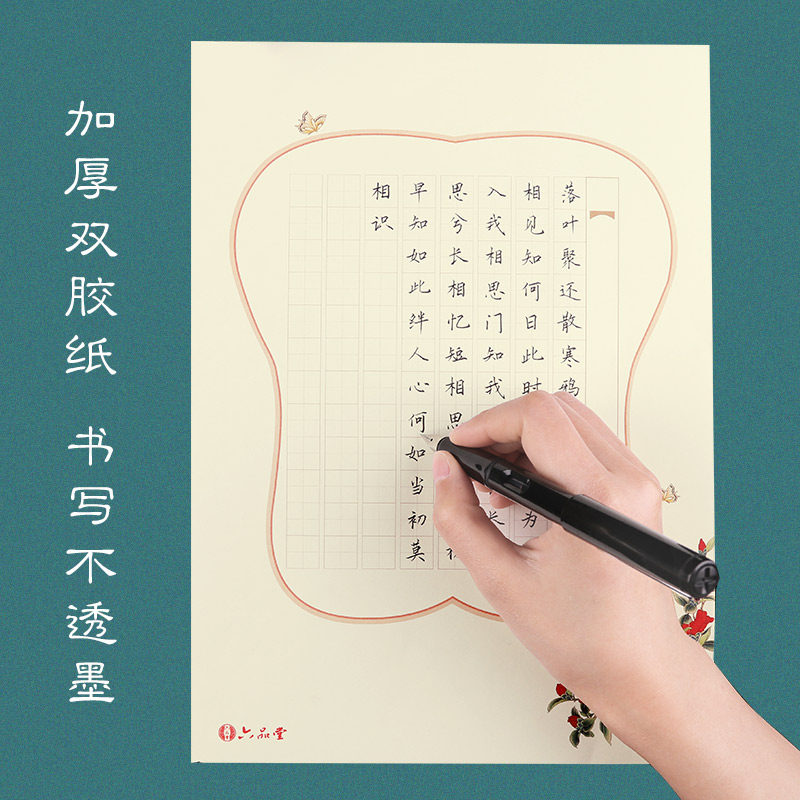 加厚双胶纸 书写不透墨
落叶聚还散寒鸦
相见知何日此时 为
入我相思门知我 长
思兮长相忆短相思
早知如此绊人心何如当初莫
相识
六品堂